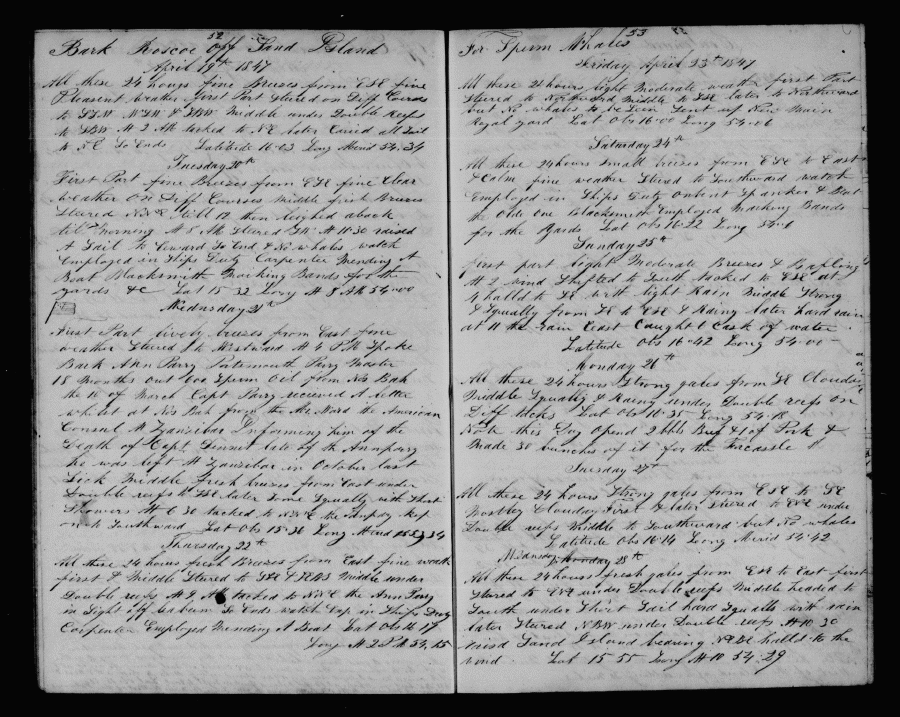 52
Bark Roscoe off Sand Island
April 19th 1847
All these 24 hours fine Breezes from ESE fine
Pleasent weather first Part Stered on Diff Courses
to SSW WSW & SBW Middle under Double reefs
to SBW At 2 AM tacked to NE later Caried all Sail
to SE So Ends Latitude 16-03 Long Merid 54-34
Tuesday 20th
First Part fine Breezes from ESE fine Clear
weather On Diff Courses Middle fresh Breezes
Stered NNE till 12 then luighed aback
till Morning At 5 AM Stered SW At 10-30 raised
A Sail to Leward So End & No whales watch
Employed in Ships Duty Carpenter Mending A
Boat Blacksmith Making Bands for the
yards &C Lat 15 32 Long At 8 AM 54-00
Wednesday 21st
First Part lively breezes from East fine
weather Stered to Westward At 4 PM Spoke
Bark Ann Parry Portsmouth Parry Master
18 Months out 600 Sperm Oil from Nos Bah
the 10 of March Capt Parry received A letter
whilst at Nos Bah from Mr Ward the American
Consul At Zanzibar Informing him of the
Death of Capt Dinnet late of the Annparry
he was left At Zanzibar in October last
Sick Middle fresh breezes from East under
Double reefs to SE later Some Squally with Short
Showers At 6 30 tacked to NNE the Annparry kept
on to Southward Lat Obs 15-36 Long Merid 53 34
Thursday 22th
All these 24 hours fresh Breezes from East fine weath
first & Middle Stered to SSE & SEBS Middle under
Double reefs At 2 AM tacked to NNE the Ann Parry
in Sight off Leabum So Ends watch Emp in Ships Duty
Carpenter Employed Mending A Boat Lat Obs 16 17
Long At 2 PM 54,15
53
For Sperm Whales
Friday April 23th 1847
All these 24 hours light Moderate weather first Part
Stered to Northward Middle to SSE later to Northward
but No whales to be Seen Sent up New Main
Royal yard Lat Obs 16-00 Long 54-06
Saturday 24th
All these 24 hours Small breezes from ESE to East
& Calm fine weather Stered to Southward watch
Employed in Ships Duty Onbent Spanker & Bent
the Olde One Blacksmith Employed Making Bands
for the yards Lat Obs 16-22 Long 54-6
Sunday 25th
first part light Moderate Breezes &
At 2 wind Shifted to South tacked to ESE at
4 halld to SE with light Rain Middle Strong
& Squally from SE to ESE & Rainy later hard rain
at 11 the rain Ceast Caught 6 Cask of water
Latitude Obs 16-42 Long 54-00
Monday 26th
All these 24 hours Strong gales from SE Cloudy
Middle Squally & Rainy under Double reefs on
Diff tacks Lat Obs 16-35 Long 54-18
Note this Day Opend 2 bbls Beef & 1 of Pork &
Made 30 bunches of it for the Forcastle
Tuesday 27th
All these 24 hours Strong gales from ESE to SE
Mostley Cloudy First & later Stered to ENE under
Double reefs Middle to Southward but No whales
Latitude Obs 16-14 Long Merid 54-42
Wednesday 28th
All these 24 hours fresh gales from ESE to East first
Stered to ENE under Double reefs Middle headed to
South under Short Sail hard Squalls with rain
later Stered NBW under Double reefs At 10 30
raisd Sand Island bearing halld to the
wind Lat 15 55 Long At 10 54-29